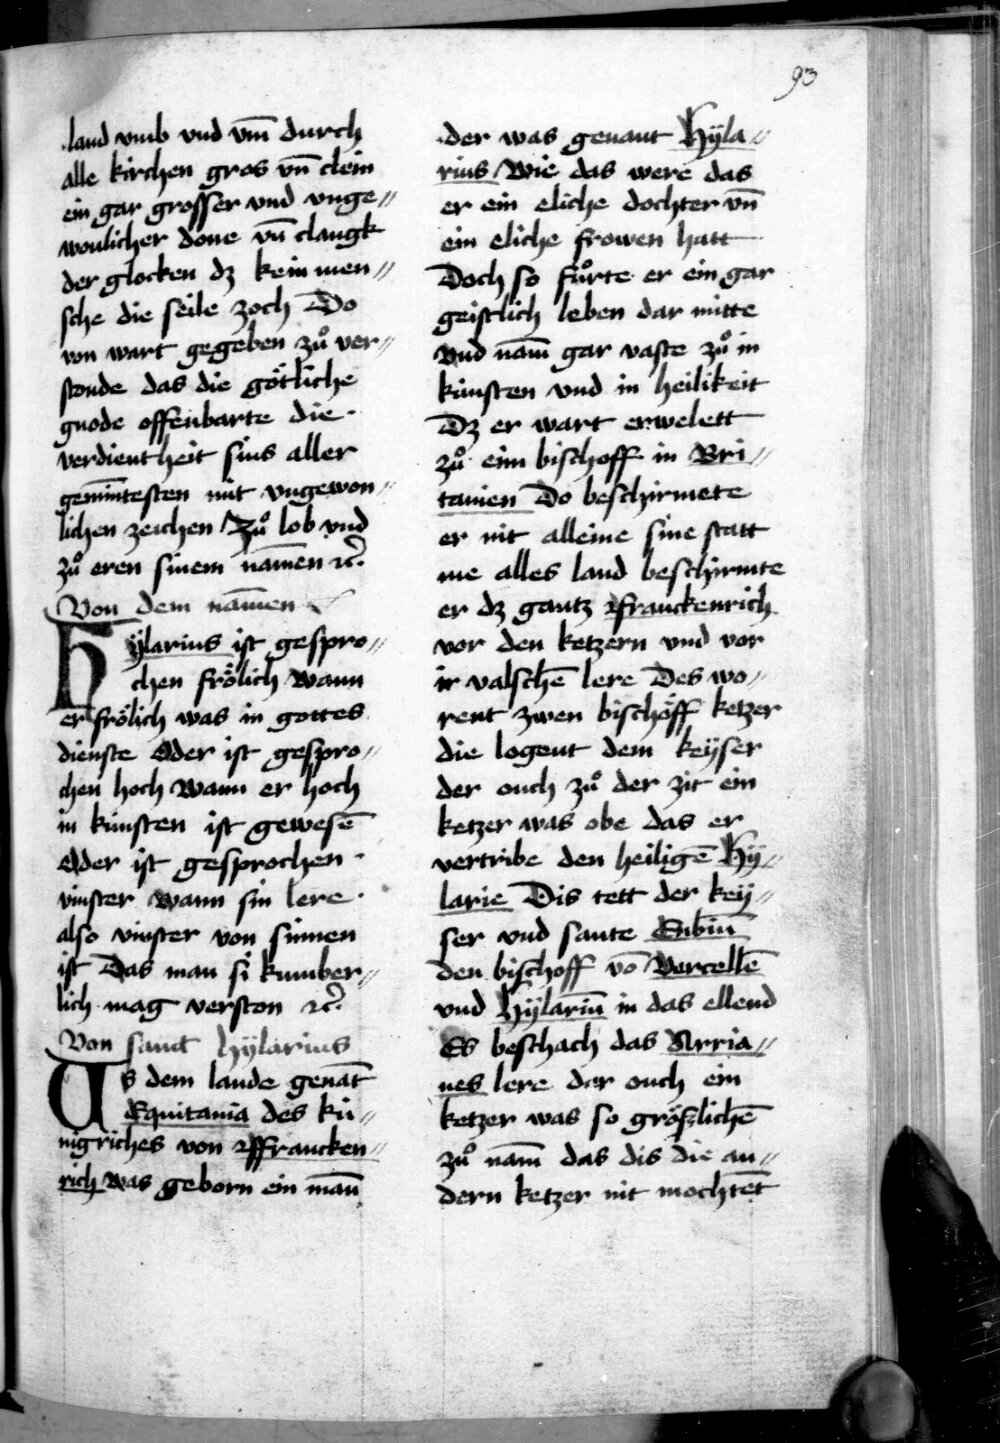 93
land vmb vnd vm̄ durch
alle kirchen gros vn̄ clein
ein gar grosser vnd vnge⸗
wonlicher done vn̄ clangk
der glocken dz kein men⸗
sche die seile zoch Do
von wart gegeben zů ver⸗
stonde das die götliche
gnode offenbarte die
verdientheit sins aller
gemīntesten mit vngewon⸗
lichen zeichen / Zů lob vnd
zů eren sinem nāmen ꝛc.
Von dem nāmen
Hÿlarius ist gespro⸗
chen frölich wann
er frölich was in gottes
dienste Oder ist gespro⸗
chen hoch wann er hoch
in kúnsten ist gewesē
Oder ist gesprochen
vinster wann sin lere
also vinster von sinnen
ist Das man si kumber⸗
lich mag verston ꝛc.
Von sanct hÿlarius
Us dem lande genāt
Equitania des kú⸗
nigriches von Francken⸗
rich was geborn ein mān
der was genant Hÿla⸗
rius / Wie das were das
er ein eliche dochter vn̄
ein eliche frowen hatt
Doch so fůrte er ein gar
geistlich leben dar mitte
Vnd nam̄ gar vaste zů in
kúnsten vnd in heilikeit
Dz er wart erwelett
zů eim bischoff in Bri⸗
tanien Do beschirmete
er nit alleine sine statt
me alles land beschirmte
er dz gantz Franckenrich
vor den ketzern vnd vor
ir valschē lere Des wo⸗
rent zwen bischöff ketzer
die logent dem keÿser
der ouch zů der zit ein
ketzer was obe das er
vertribe den heiligē Hÿ⸗
larie Dis tett der keÿ⸗
ser vnd sante Eubiū
den bischoff vō Vercellē
vnd Hÿlariū in das ellend
Es beschach das Arria⸗
nes lere der ouch ein
ketzer was so gröszlichē
zů nam̄ das dis die an⸗
dern ketzer nit mochtēt